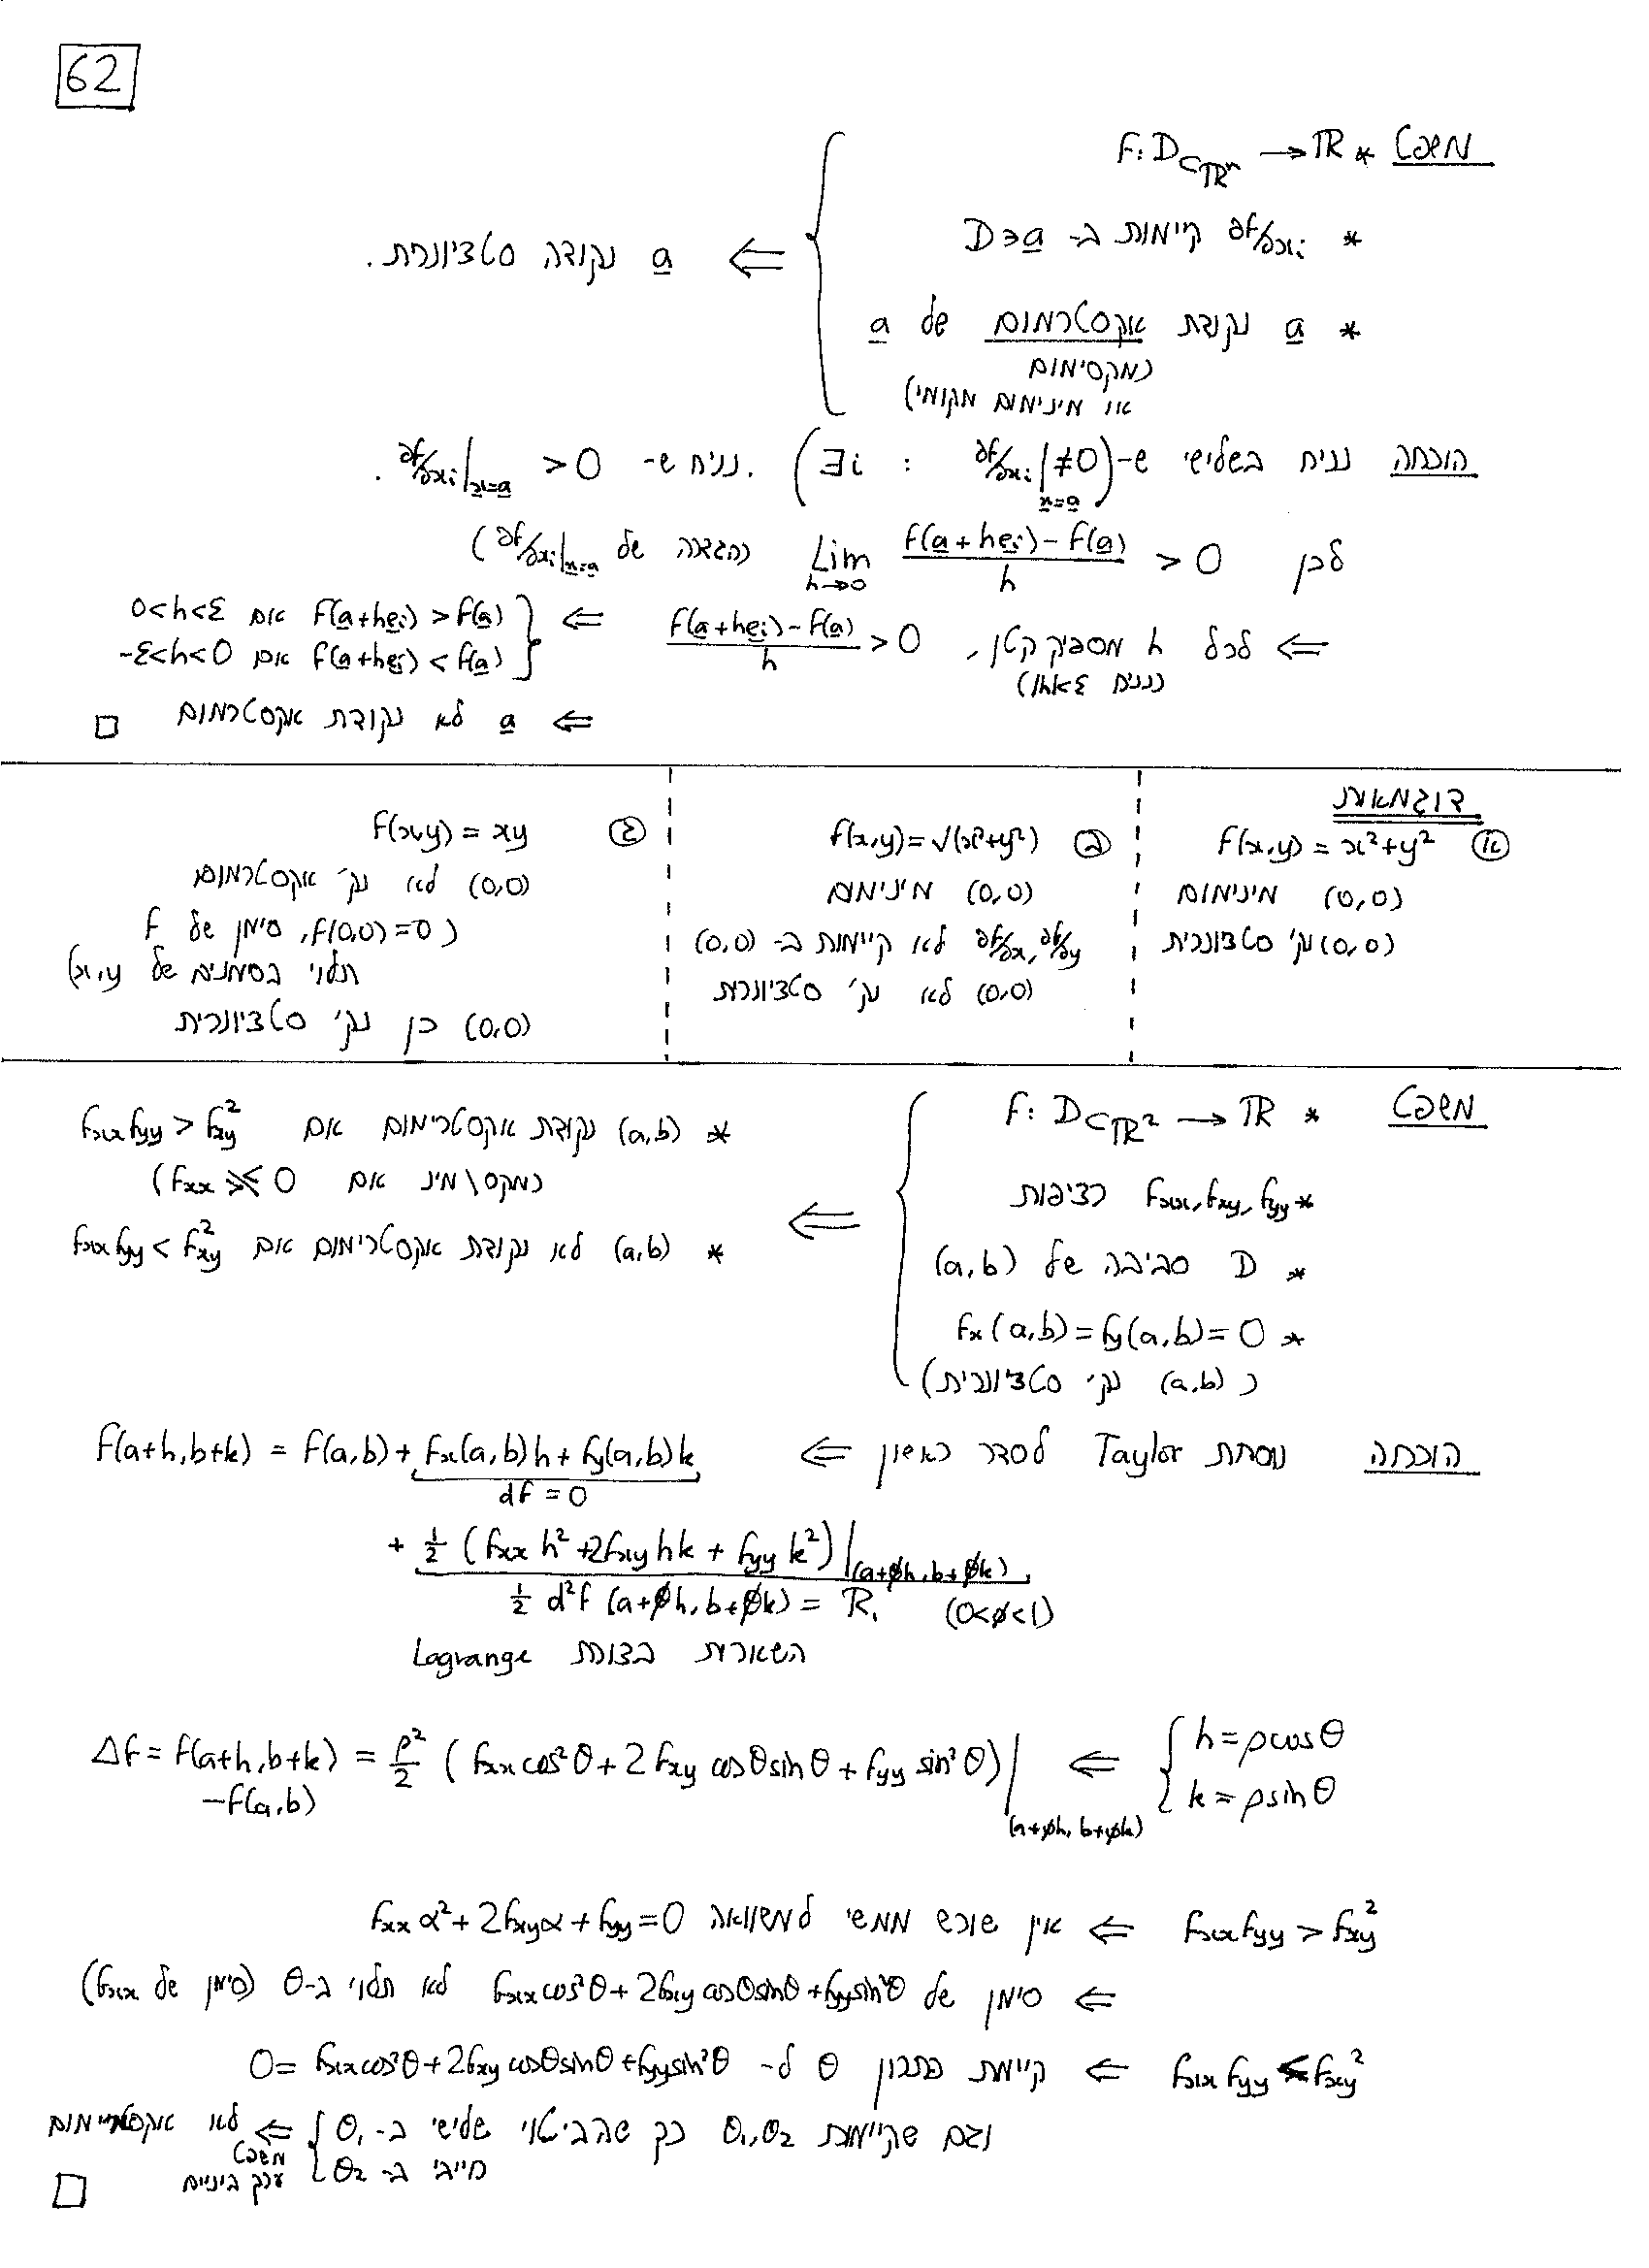 62
משפט * f: D⊂ℝⁿ → ℝ
* ∂f/∂xᵢ קיימות ב- D∋a
* a נקודת אקסטרמום של a
(מקסימום
או מינימום מקומי)
⇐ a נקודה סטציונרית.
הוכחה נניח בשלישי ש- (∃i : ∂f/∂xᵢ|x=a ≠0). נניח ש- ∂f/∂xᵢ|x=a > 0.
לכן Lim h→0 (f(a+heᵢ)-f(a))/h > 0 (הגדרה של ∂f/∂xᵢ|x=a)
⇐ לכל h מספיק קטן, (f(a+heᵢ)-f(a))/h > 0 ⇐ { f(a+heᵢ) > f(a) אם 0<h<ε
f(a+heᵢ) < f(a) אם -ε<h<0
⇐ a לא נקודת אקסטרמום □
דוגמאות
(א) f(x,y) = x²+y²
(0,0) מינימום
(0,0) נק' סטציונרית
(ב) f(x,y) = √(x²+y²)
(0,0) מינימום
∂f/∂x, ∂f/∂y לא קיימות ב- (0,0)
(0,0) לא נק' סטציונרית
(ג) f(x,y) = xy
(0,0) לא נק' אקסטרמום
(f(0,0)=0, סימן של f
תלוי בסמנים של x,y)
(0,0) כן נק' סטציונרית
משפט * f: D⊂ℝ² → ℝ
* fxx, fxy, fyy רציפות
* D סביבה של (a,b)
* fx(a,b)=fy(a,b)=0
((a,b) נק' סטציונרית)
⇐
* (a,b) נקודת אקסטרימום אם fxx fyy > fxy²
(מקס\מינ אם fxx ≶ 0)
* (a,b) לא נקודת אקסטרימום אם fxx fyy < fxy²
הוכחה נוסחת Taylor לסדר ראשון ⇐ f(a+h,b+k) = f(a,b) + fx(a,b)h + fy(a,b)k
df = 0
+ ½ (fxx h² + 2fxy hk + fyy k²)|(a+φh, b+φk)
½ d²f (a+φh, b+φk) = R₁ (0<φ<1)
השארית בצורת Lagrange
{ h = ρcosθ
k = ρsinθ
⇐ Δf = f(a+h,b+k) = ρ²/2 (fxx cos²θ + 2fxy cosθ sinθ + fyy sin²θ)|(a+φh, b+φk)
-f(a,b)
fxx fyy > fxy² ⇐ אין שורש ממשי למשוואה fxx α² + 2fxy α + fyy = 0
⇐ סימן של fxx cos²θ + 2fxy cosθ sinθ + fyy sin²θ לא תלוי ב-θ (סימן של fxx)
fxx fyy < fxy² ⇐ קיימת פתרון θ ל- 0= fxx cos²θ + 2fxy cosθ sinθ + fyy sin²θ
וגם שקיימת θ₁, θ₂ כך שהביטוי שלישי ב- θ₁
חייבי ב- θ₂
⇐ לא אקסטרימום
משפט
ערך ביניים
□